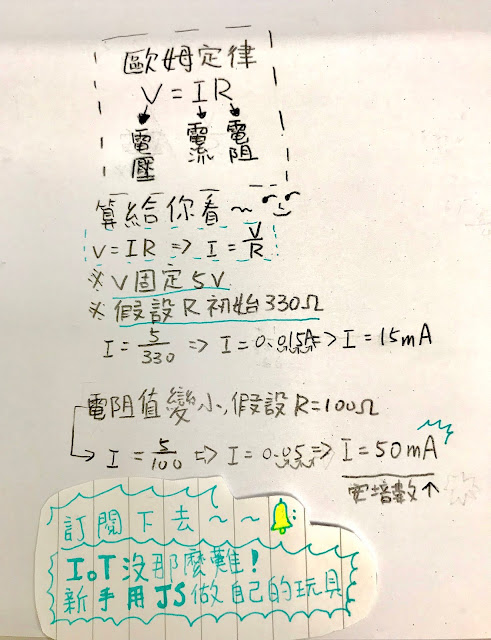 歐姆定律
V = I R
電壓 電流 電阻
算給你看～
V=IR => I = V/R
※ V 固定 5V
※ 假設 R 初始 330Ω
I = 5/330 => I = 0.015A => I = 15mA
電阻值變小,假設 R=100Ω
I = 5/100 => I = 0.05 => I = 50mA
安培數↑
訂閱下去～～
IoT 沒那麼難!
新手用JS做自己的玩具